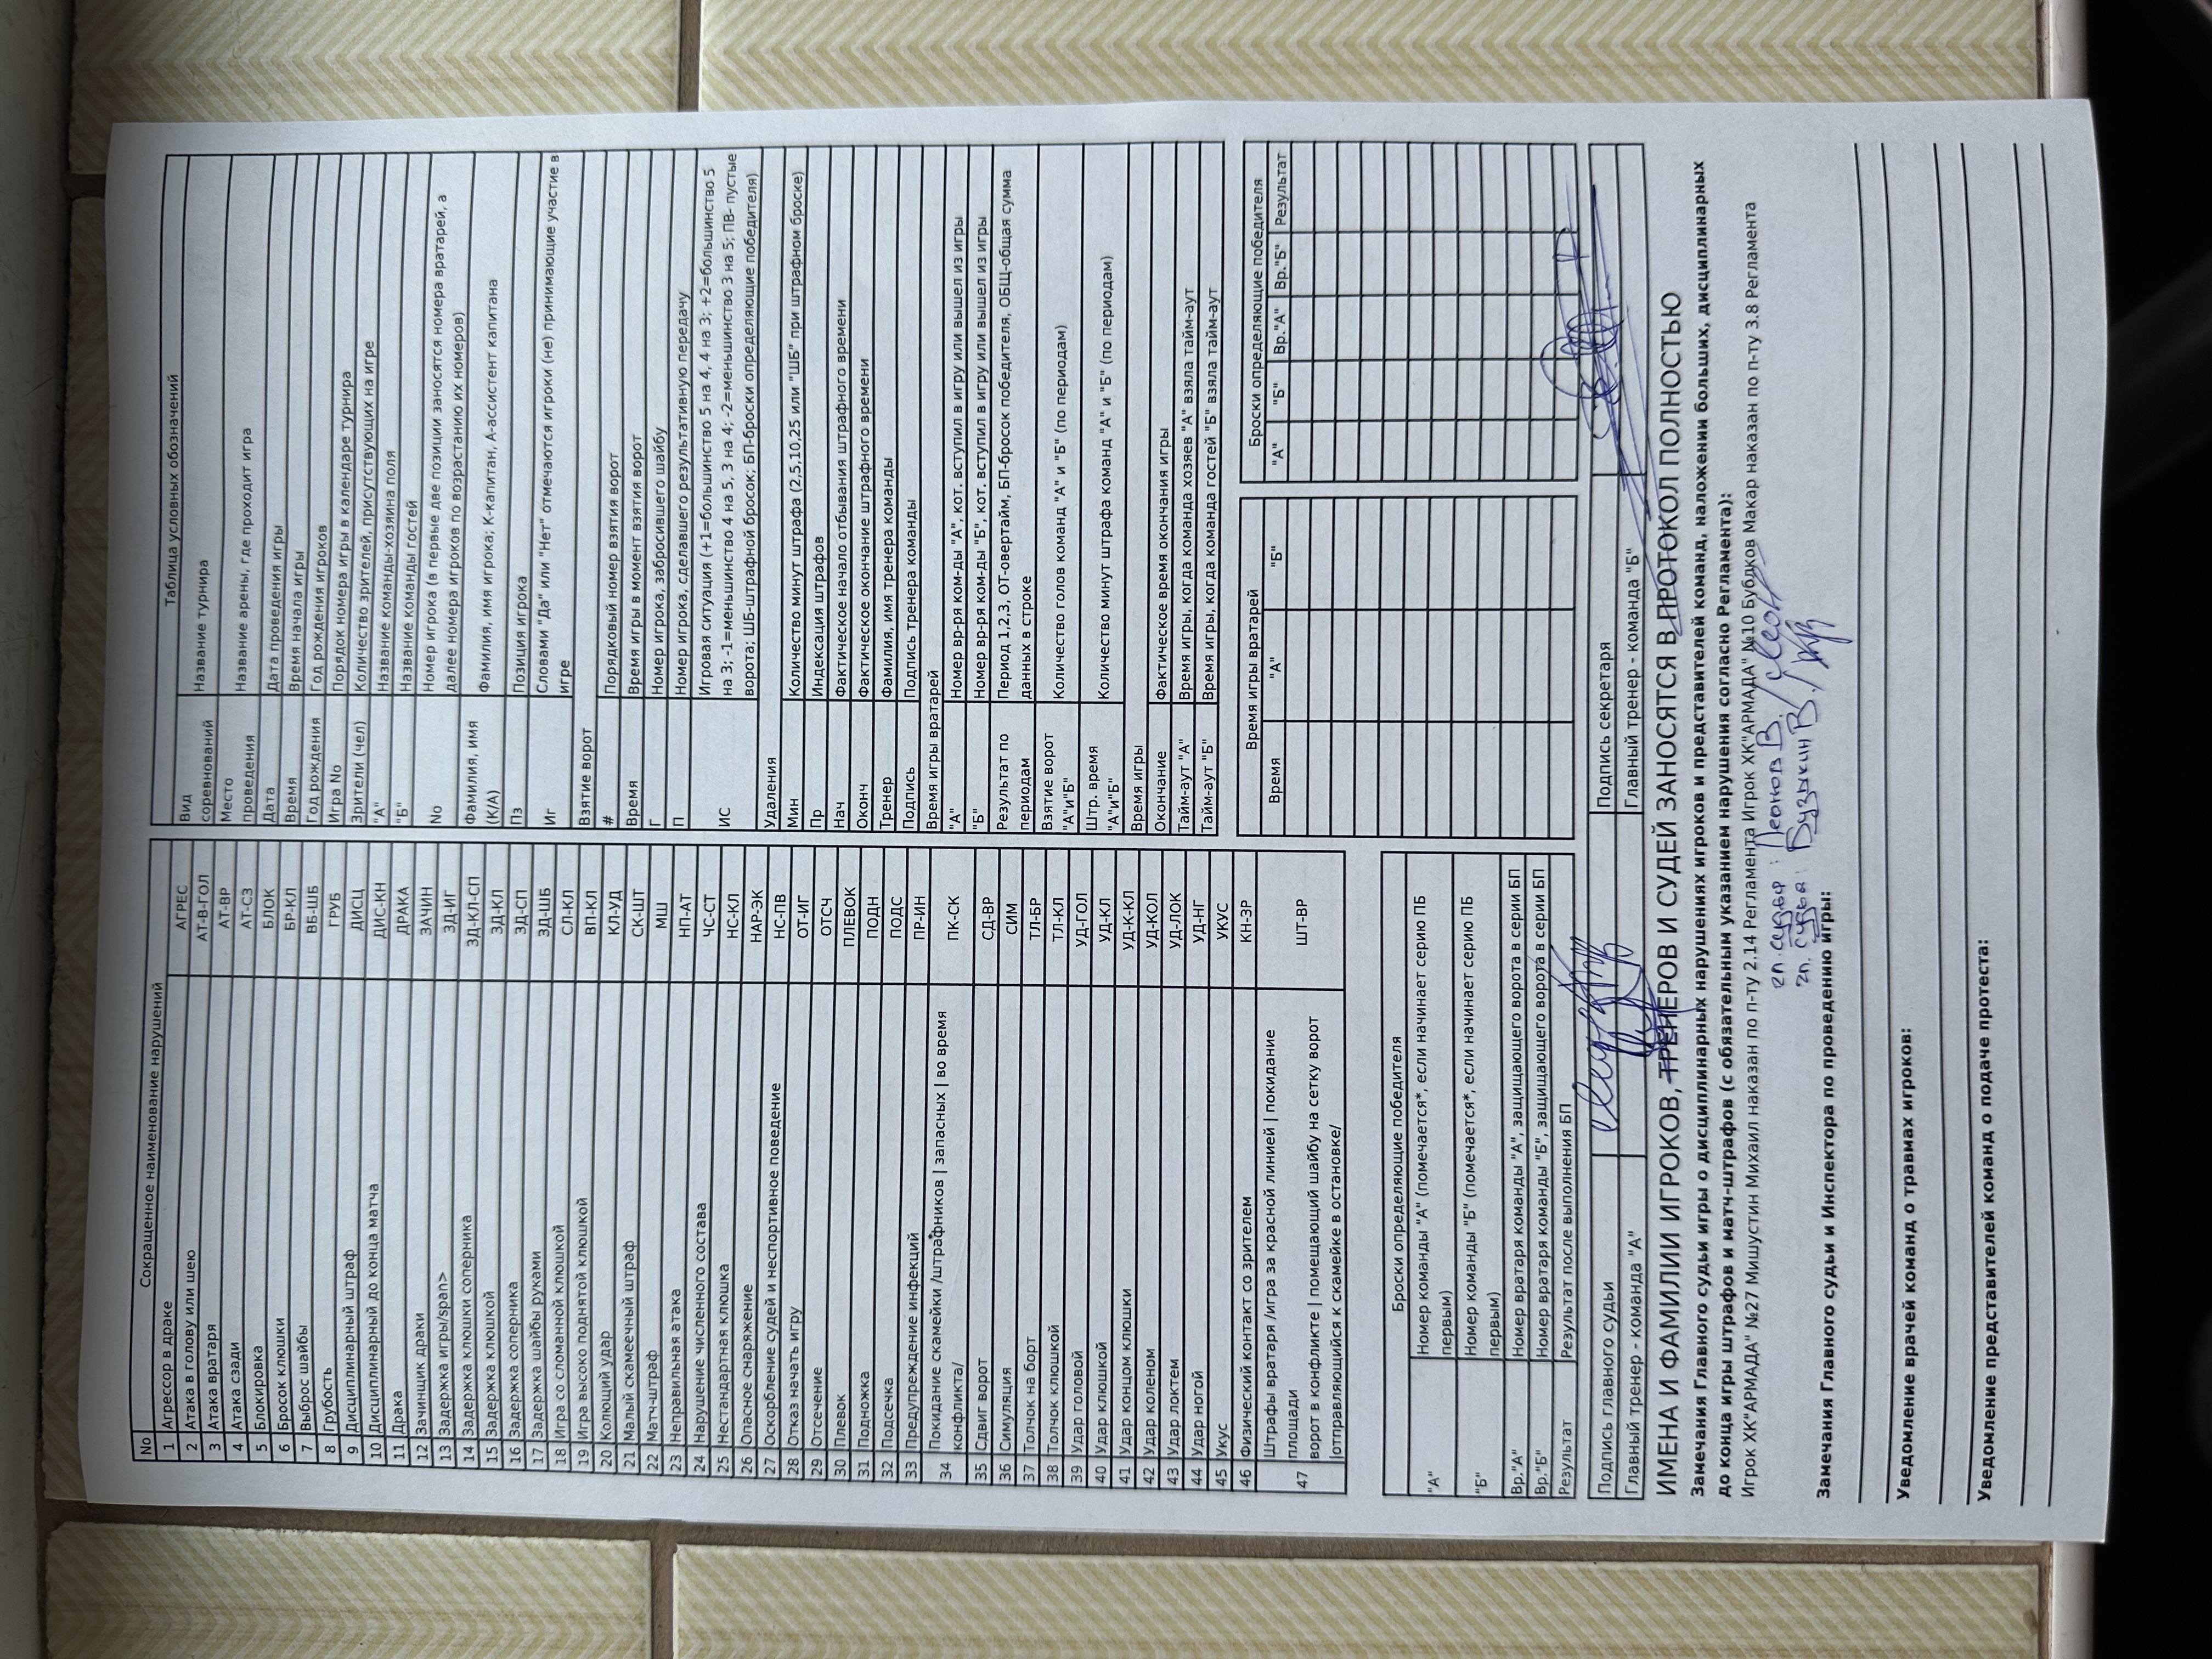 No Сокращенное наименование нарушений
1 Агрессор в драке АГРЕС
2 Атака в голову или шею АТ-В-ГОЛ
3 Атака вратаря АТ-ВР
4 Атака сзади АТ-СЗ
5 Блокировка БЛОК
6 Бросок клюшки БР-КЛ
7 Выброс шайбы ВБ-ШБ
8 Грубость ГРУБ
9 Дисциплинарный штраф ДИСЦ
10 Дисциплинарный до конца матча ДИС-КН
11 Драка ДРАКА
12 Зачинщик драки ЗАЧИН
13 Задержка игры/span> ЗД-ИГ
14 Задержка клюшки соперника ЗД-КЛ-СП
15 Задержка клюшкой ЗД-КЛ
16 Задержка соперника ЗД-СП
17 Задержка шайбы руками ЗД-ШБ
18 Игра со сломанной клюшкой СЛ-КЛ
19 Игра высоко поднятой клюшкой ВП-КЛ
20 Колющий удар КЛ-УД
21 Малый скамеечный штраф СК-ШТ
22 Матч-штраф МШ
23 Неправильная атака НП-АТ
24 Нарушение численного состава ЧС-СТ
25 Нестандартная клюшка НС-КЛ
26 Опасное снаряжение НАР-ЭК
27 Оскорбление судей и неспортивное поведение НС-ПВ
28 Отказ начать игру ОТ-ИГ
29 Отсечение ОТСЧ
30 Плевок ПЛЕВОК
31 Подножка ПОДН
32 Подсечка ПОДС
33 Предупреждение инфекций ПР-ИН
34 Покидание скамейки /штрафников | запасных | во время
конфликта/ ПК-СК
35 Сдвиг ворот СД-ВР
36 Симуляция СИМ
37 Толчок на борт ТЛ-БР
38 Толчок клюшкой ТЛ-КЛ
39 Удар головой УД-ГОЛ
40 Удар клюшкой УД-КЛ
41 Удар концом клюшки УД-К-КЛ
42 Удар коленом УД-КОЛ
43 Удар локтем УД-ЛОК
44 Удар ногой УД-НГ
45 Укус УКУС
46 Физический контакт со зрителем КН-ЗР
47 Штрафы вратаря /игра за красной линией | покидание
площади
ворот в конфликте | помещающий шайбу на сетку ворот
|отправляющийся к скамейке в остановке/ ШТ-ВР
Таблица условных обозначений
Вид
соревнований Название турнира
Место
проведения Название арены, где проходит игра
Дата Дата проведения игры
Время Время начала игры
Год рождения Год рождения игроков
Игра No Порядок номера игры в календаре турнира
Зрители (чел) Количество зрителей, присутствующих на игре
"А" Название команды-хозяина поля
"Б" Название команды гостей
No Номер игрока (в первые две позиции заносятся номера вратарей, а
далее номера игроков по возрастанию их номеров)
Фамилия, имя
(К/А) Фамилия, имя игрока; К-капитан, А-ассистент капитана
Пз Позиция игрока
Иг Словами "Да" или "Нет" отмечаются игроки (не) принимающие участие в
игре
Взятие ворот
# Порядковый номер взятия ворот
Время Время игры в момент взятия ворот
Г Номер игрока, забросившего шайбу
П Номер игрока, сделавшего результативную передачу
ИС Игровая ситуация (+1=большинство 5 на 4, 4 на 3; +2=большинство 5
на 3; -1=меньшинство 4 на 5, 3 на 4; -2=меньшинство 3 на 5; ПВ- пустые
ворота; ШБ-штрафной бросок; БП-броски определяющие победителя)
Удаления
Мин Количество минут штрафа (2,5,10,25 или "ШБ" при штрафном броске)
Пр Индексация штрафов
Нач Фактическое начало отбывания штрафного времени
Оконч Фактическое окончание штрафного времени
Тренер Фамилия, имя тренера команды
Подпись Подпись тренера команды
Время игры вратарей
"А" Номер вр-ря ком-ды "А", кот. вступил в игру или вышел из игры
"Б" Номер вр-ря ком-ды "Б", кот. вступил в игру или вышел из игры
Результат по
периодам Период 1,2,3, ОТ-овертайм, БП-бросок победителя, ОБЩ-общая сумма
данных в строке
Взятие ворот
"А"и"Б" Количество голов команд "А" и "Б" (по периодам)
Штр. время
"А"и"Б" Количество минут штрафа команд "А" и "Б" (по периодам)
Время игры
Окончание Фактическое время окончания игры
Тайм-аут "А" Время игры, когда команда хозяев "А" взяла тайм-аут
Тайм-аут "Б" Время игры, когда команда гостей "Б" взяла тайм-аут
Броски определяющие победителя
"А" Номер команды "А" (помечается*, если начинает серию ПБ
первым)
"Б" Номер команды "Б" (помечается*, если начинает серию ПБ
первым)
Вр."А" Номер вратаря команды "А", защищающего ворота в серии БП
Вр."Б" Номер вратаря команды "Б", защищающего ворота в серии БП
Результат Результат после выполнения БП
Время игры вратарей
Время "А" "Б"
Броски определяющие победителя
"А" "Б" Вр."А" Вр."Б" Результат
Подпись главного судьи Подпись секретаря
Главный тренер - команда "А" Главный тренер - команда "Б"
ИМЕНА И ФАМИЛИИ ИГРОКОВ, ТРЕНЕРОВ И СУДЕЙ ЗАНОСЯТСЯ В ПРОТОКОЛ ПОЛНОСТЬЮ
Замечания Главного судьи игры о дисциплинарных нарушениях игроков и представителей команд, наложении больших, дисциплинарных
до конца игры штрафов и матч-штрафов (с обязательным указанием нарушения согласно Регламента):
Игрок ХК"АРМАДА" №27 Мишустин Михаил наказан по п-ту 2.14 Регламента Игрок ХК"АРМАДА" №10 Бубдков Макар наказан по п-ту 3.8 Регламента
гл. судья: Леонов В./
гл. судья: Бузыкин В./
Замечания Главного судьи и Инспектора по проведению игры:
Уведомление врачей команд о травмах игроков:
Уведомление представителей команд о подаче протеста: